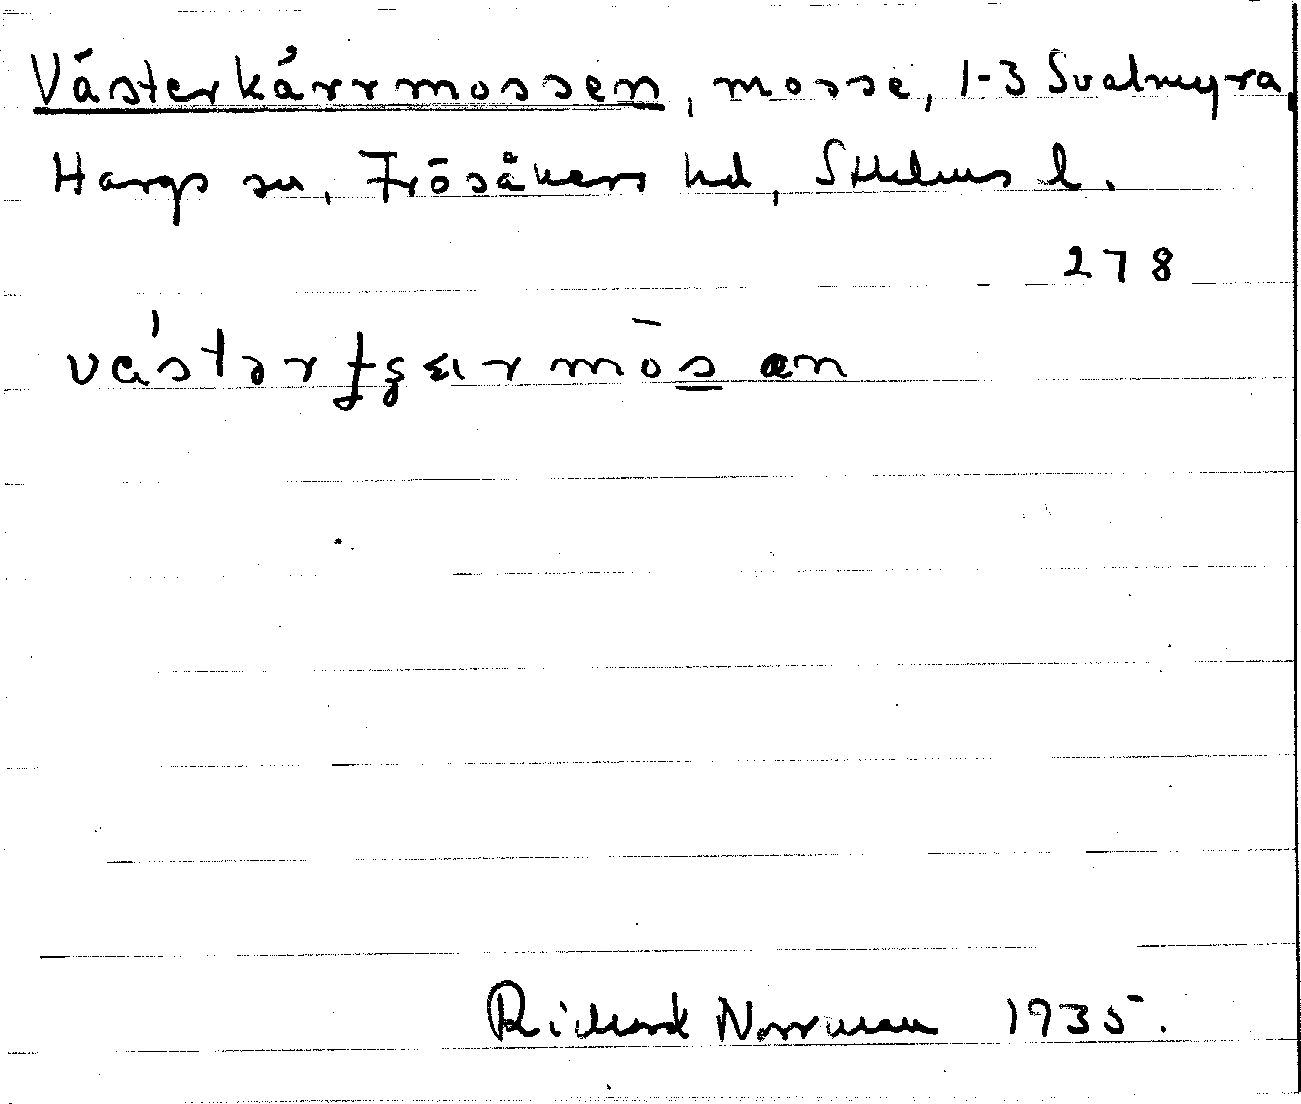 Västerkärrmossen, mosse, 1-3 Svalmyra,
Hargs sn, Frösåkers hd, Sthlms l.
278
västərʈʂɛrmos̲an
Rickard Norrman 1935.